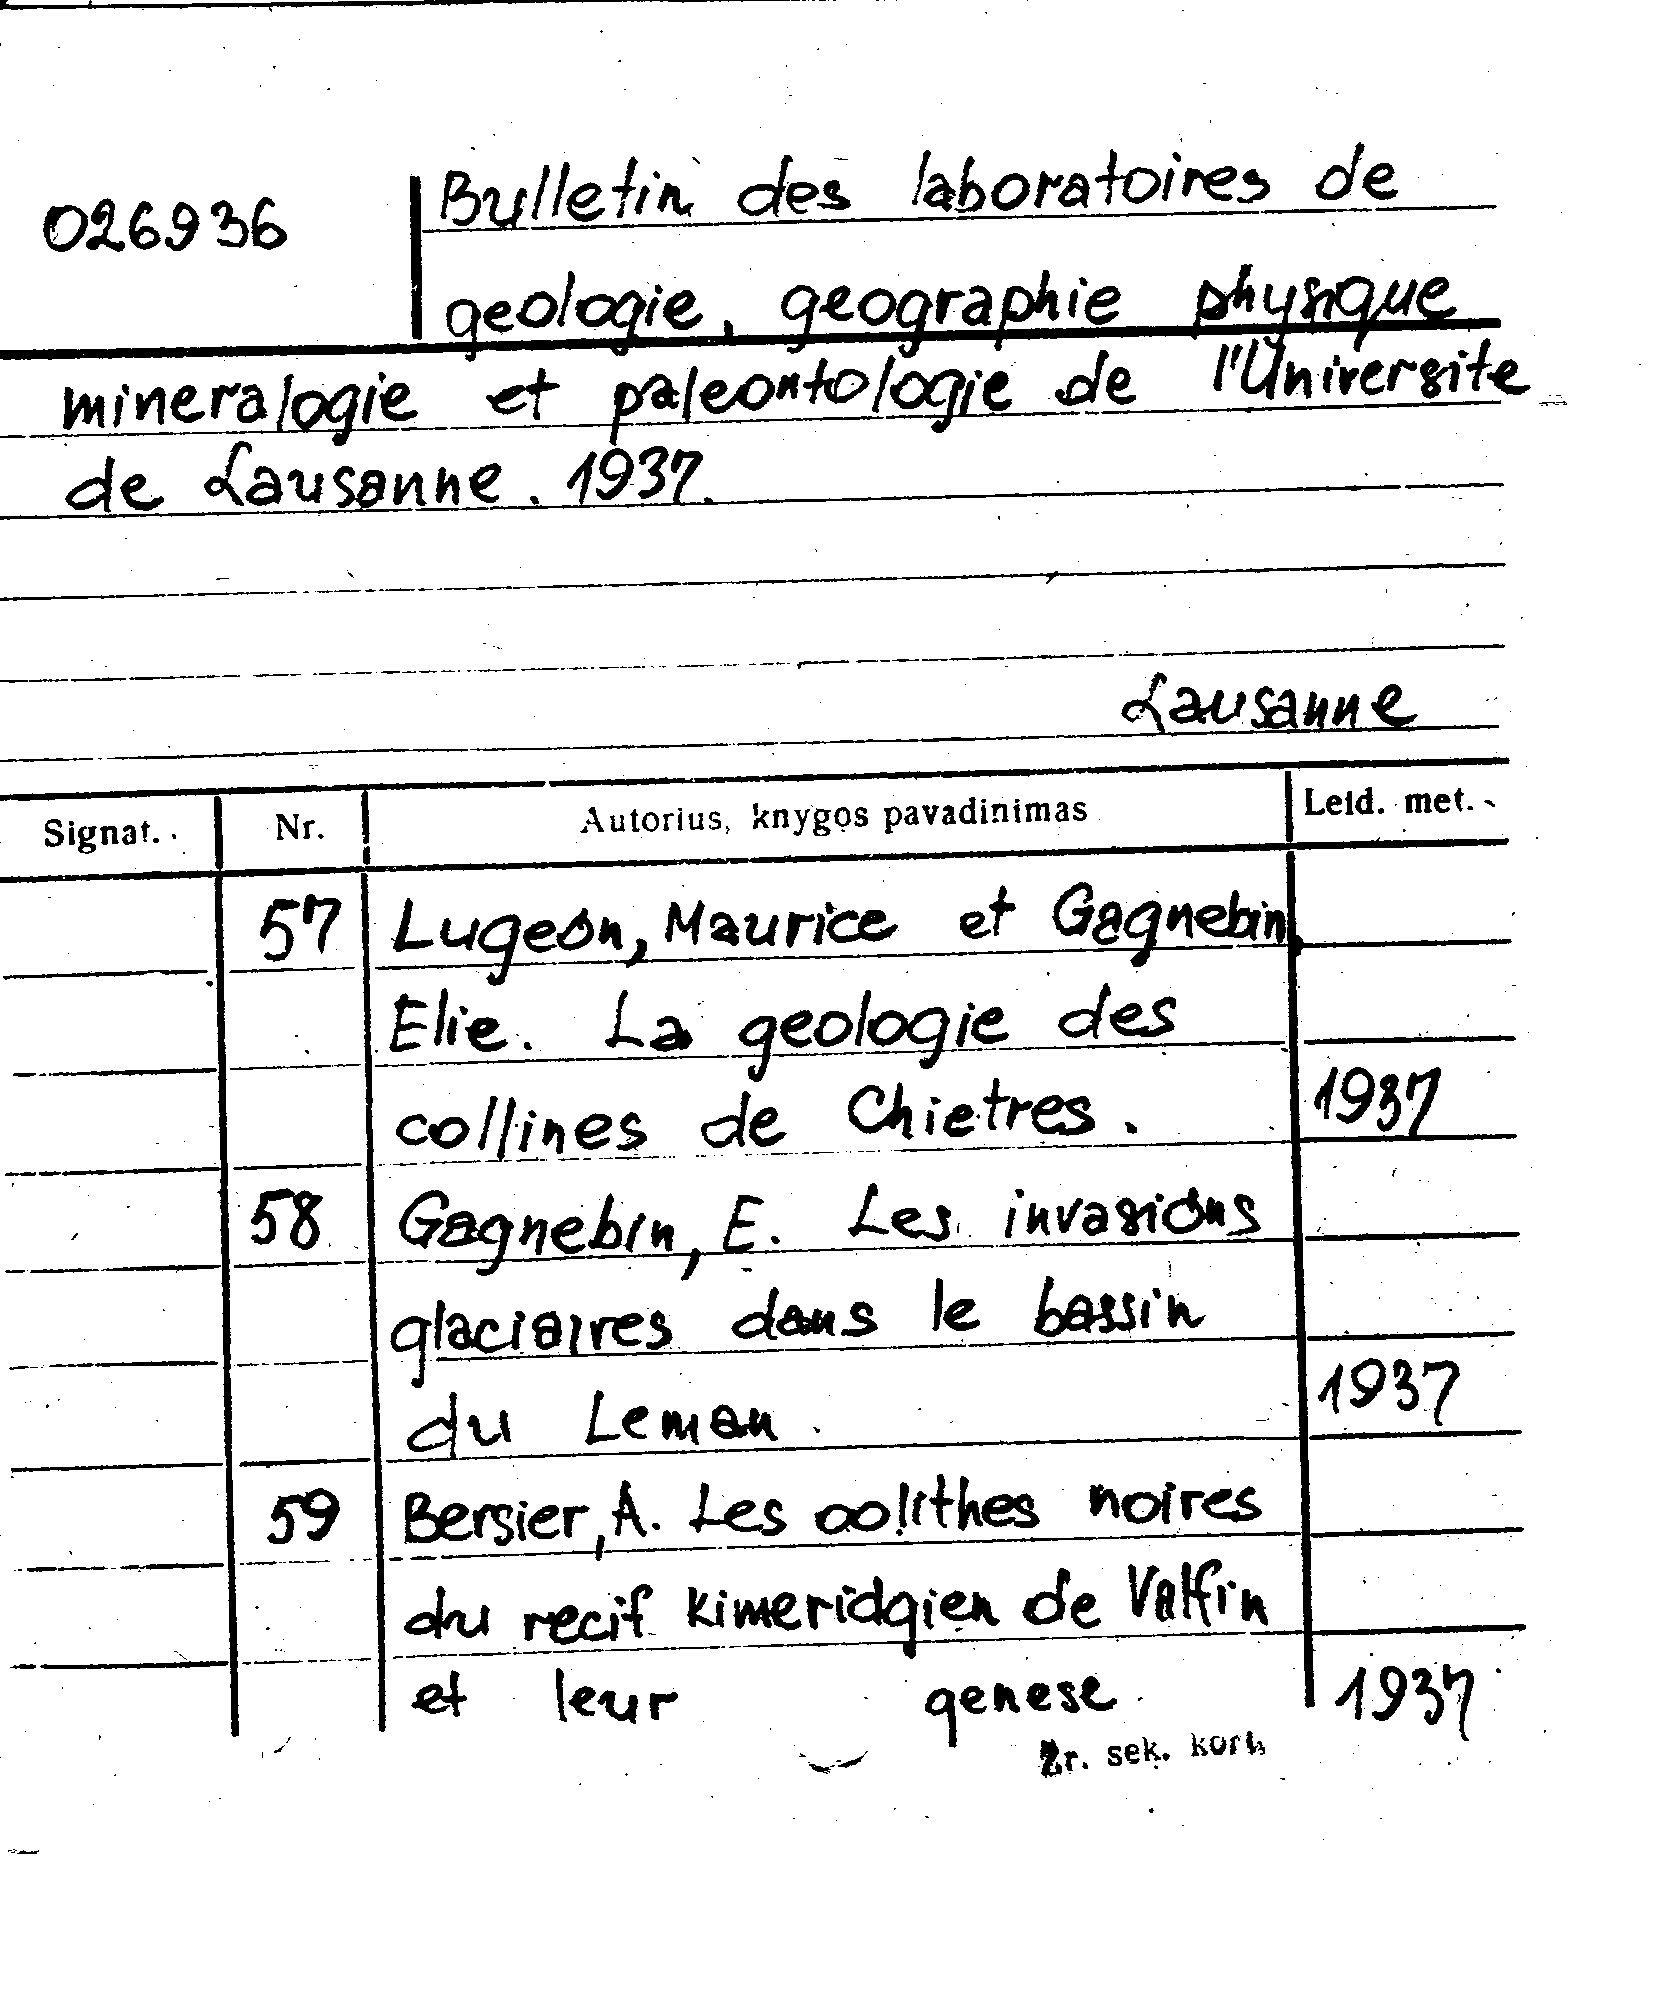 026936
Bulletin des laboratoires de
geologie, geographie physique
mineralogie et paleontologie de l'Universite
de Lausanne. 1937.
Lausanne
Signat. Nr. Autorius, knygos pavadinimas Leid. met.
57 Lugeon, Maurice et Gagnebin,
Elie. La geologie des
collines de Chietres. 1937
58 Gagnebin, E. Les invasions
glaciaires dans le bassin
du Leman. 1937
59 Bersier, A. Les oolithes noires
du recif kimeridgien de Valfin
et leur genese 1937
Žr. sek. kort.